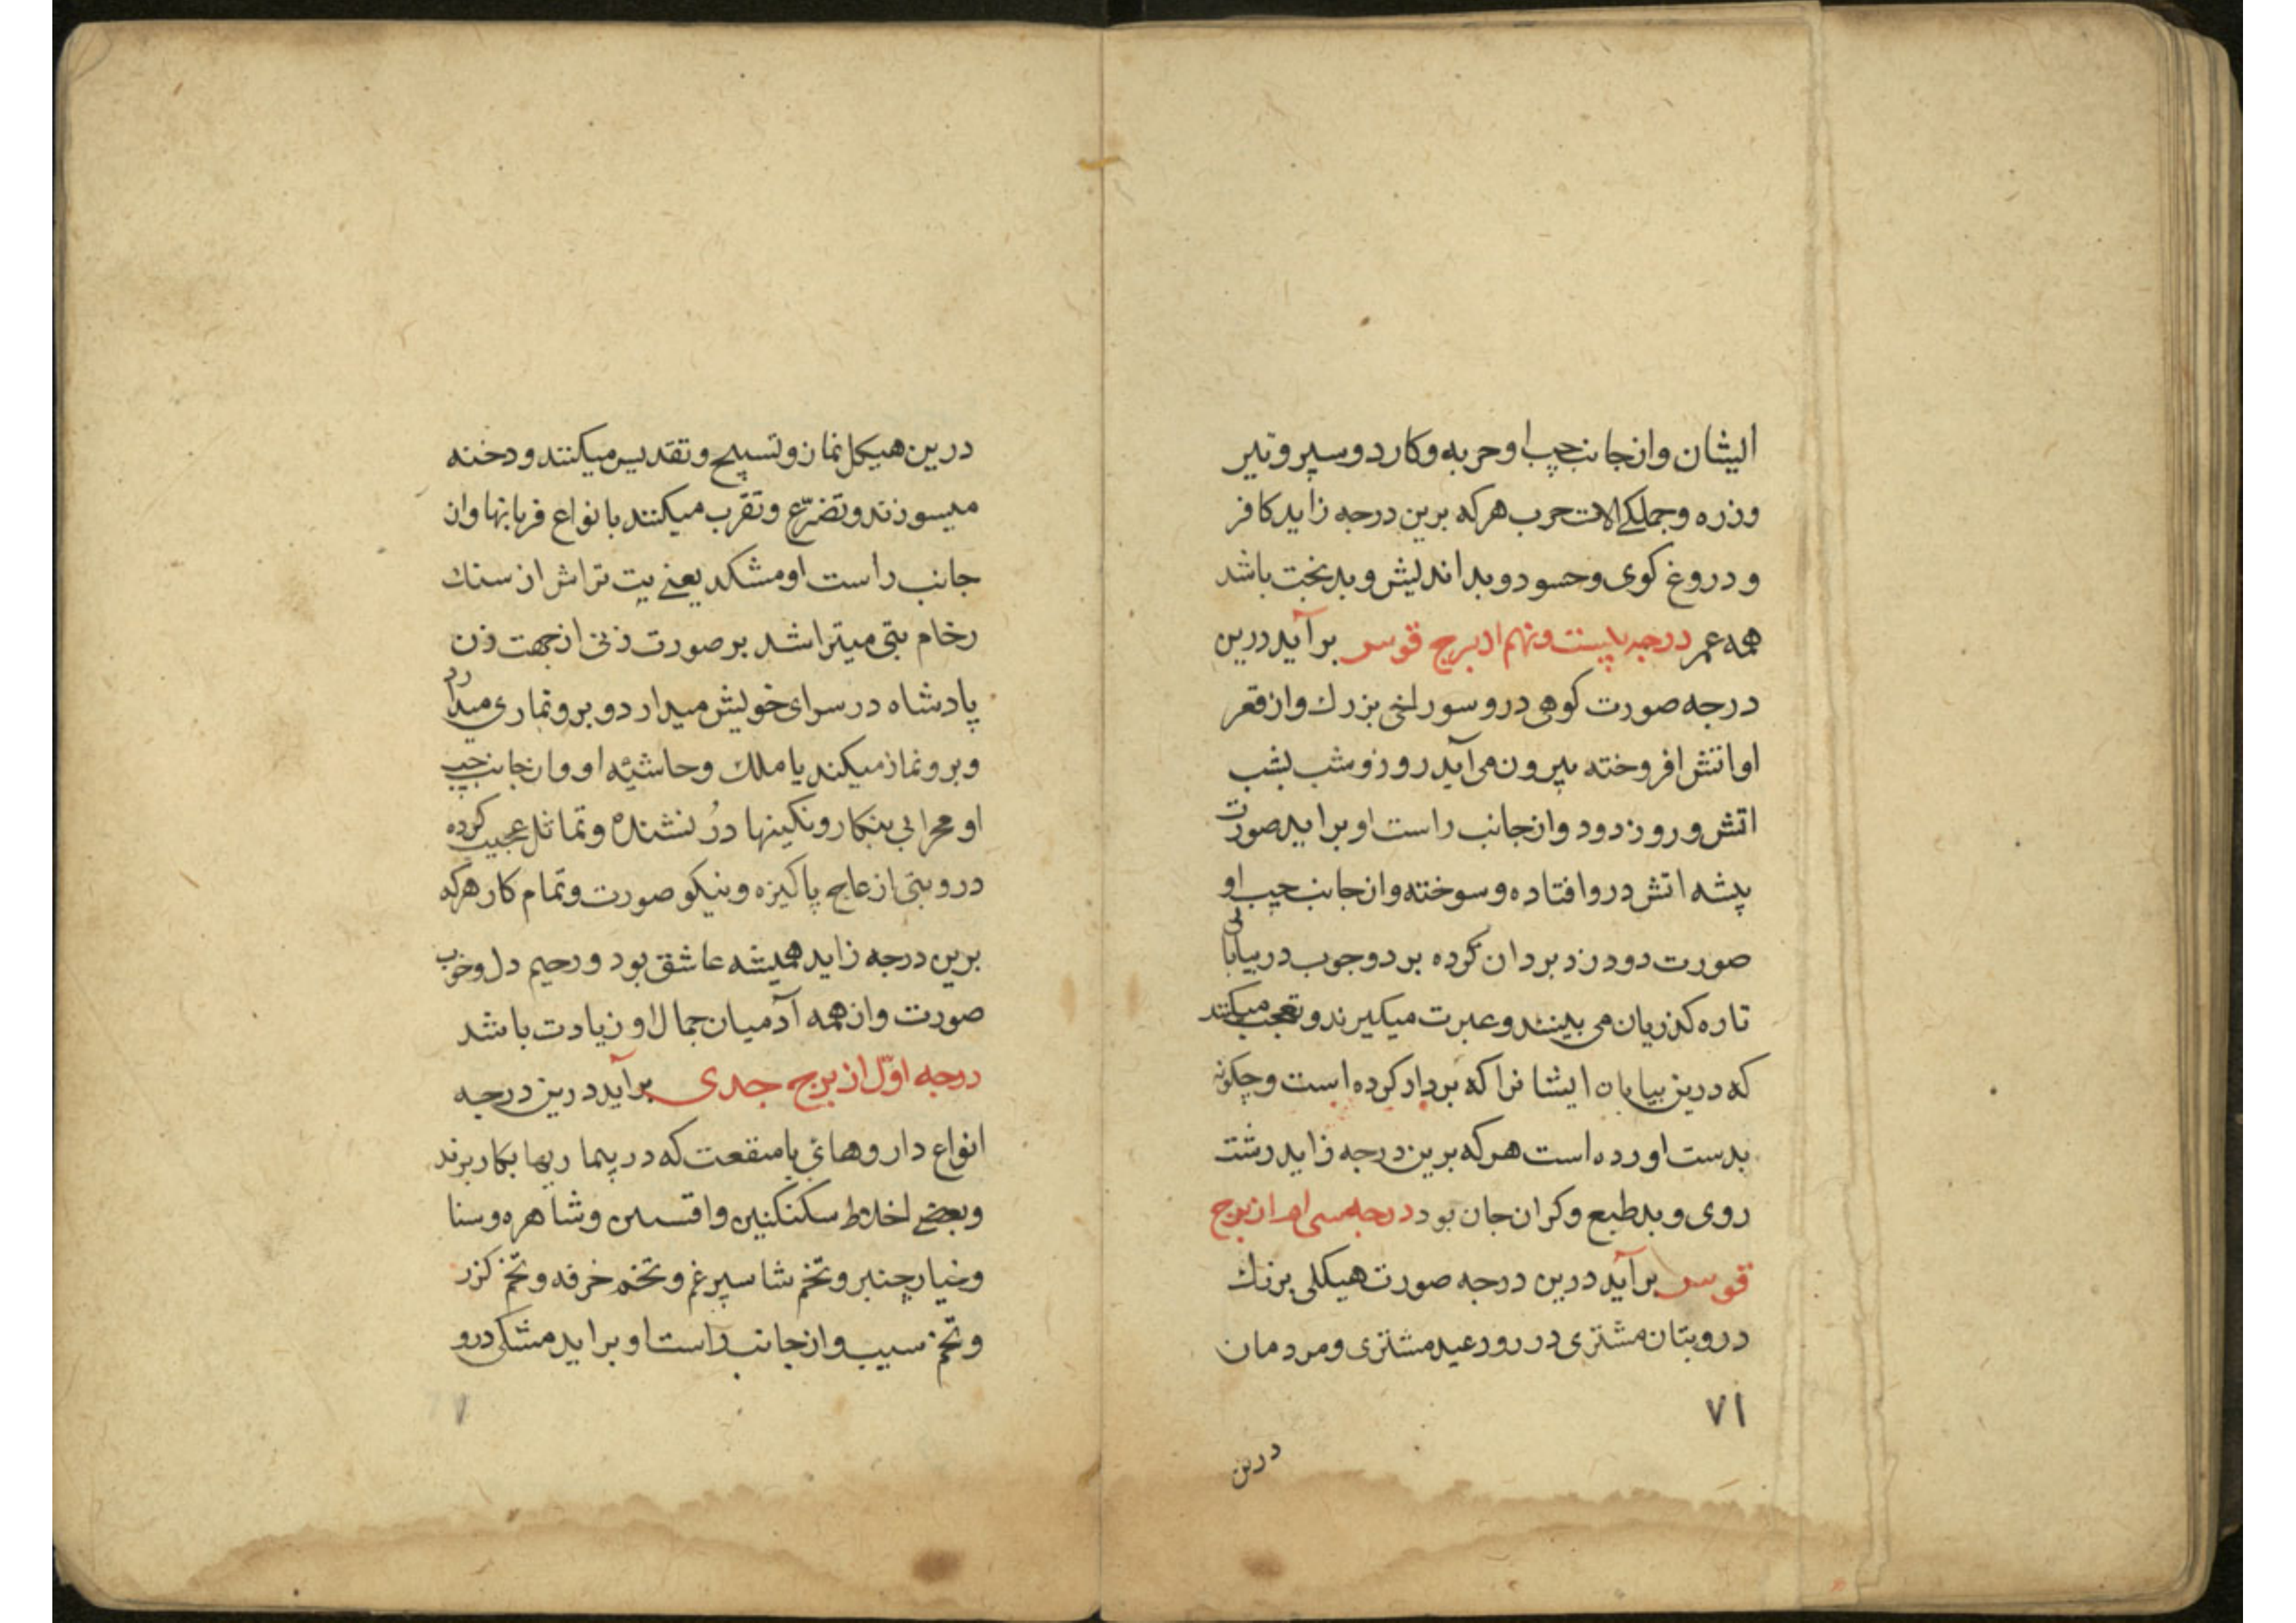 ایشان وازجانب چپ او حربه وکارد وسپر وتیر
وزره وجملکے الات حرب هرکه برین درجه زاید کافر
و دروغ کوی وحسود وبد اندیش وبدبخت باشد
همه عمر درجه بیست ونهم از برج قوس برآید درین
درجه صورت کوهی درو سوراخی بزرك واز قعر
او اتش افروخته بیرون می آید روز وشب بشب
اتش وروز دود وازجانب راست او براید صورت
بیشه اتش دروافتاده وسوخته وازجانب چپ او
صورت دودزد بردار کرده بردوچوب دربیابانی
تاره کذریان می بینند وعبرت میکیرند وتعجب میکنند
که درین بیابان ایشانرا که بردار کرده است وچکونه
بدست اورده است هرکه برین درجه زاید زشت
روی وبدطبع وکران جان بود درجه سی ام از برج
قوس برآید درین درجه صورت هیکلی بزرك
درو بتان مشتری در روز عید مشتری ومردمان
۷۱
درین
درین هیکل نماز وتسبیح وتقدیس میکنند ودخنه
میسوزند وتضرّع وتقرب میکنند بانواع قربانها واز
جانب راست او مشکد یعنے بت تراش از سنك
رخام بتی میتراشد بر صورت زنی ازجهت زن
پادشاه در سرای خویش میدارد وبرو نماری میدارد
وبرو نماز میکند یا ملك وحاشیٔه او وازجانب چپ
او محرابی بنکار ونکینها دُر نشنده وتماثیل عجیب کرده
درو بتی از عاج پاکیزه ونیکو صورت وتمام کار هرکه
برین درجه زاید همیشه عاشق بود ورحیم دل وخوب
صورت واز همه آدمیان جمال او زیادت باشد
درجه اوّل از برج جدی برآید درین درجه
انواع داروهائ بامنفعت که در بیماریها بکار برند
وبعضے اخلاط سکنکنین وافسنین وشاهره وسنا
وخیارچنبر وتخم شاسپرغم وتخم خرفه وتخم کزر
وتخم سیب وازجانب راست او براید مشکی درو